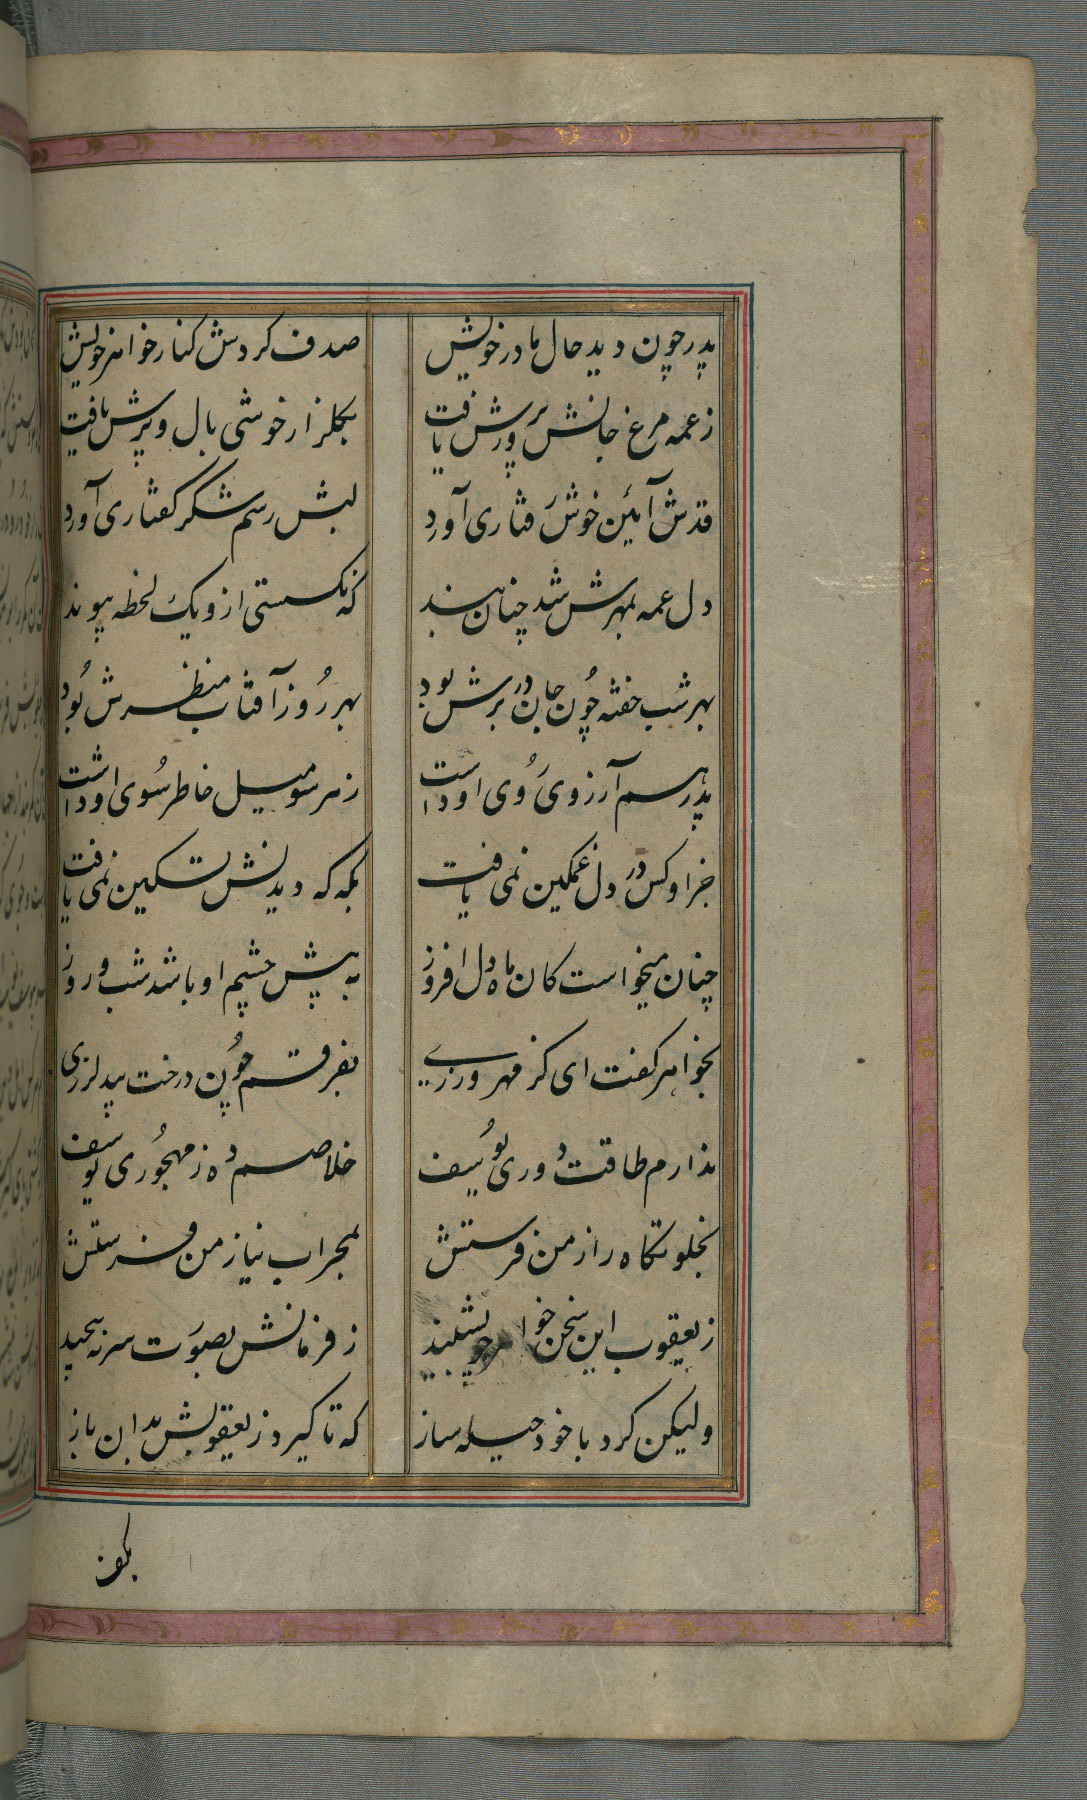 پدر چون دید حال مادر خویش
صدف کردش کنار خواهر خویش
ز عمه مرغ جانش پرورش یافت
بگلزار خوشی بال و پرش یافت
قدش آیین خوش رفتاری آورد
لبش رسم شکر گفتاری آورد
دل عمه بمهرش شد چنان بند
که نگسستی ازو یک لحظه پیوند
بهر شب خفته چون جان در برش بود
بهر روز آفتاب منظرش بود
پدر هم آرزوی روی او داشت
ز هر سو میل خاطر سوی او داشت
جز او کس در دل غمگین نمی یافت
بگه گه دیدنش تسکین نمی یافت
چنان میخواست کان ماه دل افروز
به پیش چشم او باشد شب و روز
بخواهر گفت ای کز مهر ورزی
بفرقم چون درخت بید لرزی
ندارم طاقت دوری یوسف
خلاصم ده ز مهجوری یوسف
بخلوتگاه راز من فرستش
بمحراب نیاز من فرستش
ز یعقوب این سخن خواهر چو بشنید
ز فرمانش بصورت سر نپیچید
ولیکن کرد با خود حیله ساز
که تا گیرد ز یعقوبش بدان باز
بکف